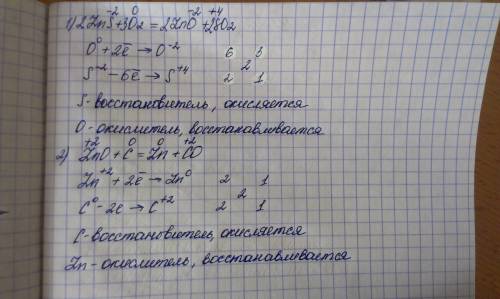 -2 0 -2 +4
1) 2ZnS + 3O2 = 2ZnO + 2SO2
O⁰ + 2ē → O⁻² 6 3
2
S⁻² - 6ē → S⁺⁴ 2 1
S - восстановитель, окисляется
O - окислитель, восстанавливается
+2 0 0 +2
2) ZnO + C = Zn + CO
Zn⁺² + 2ē → Zn⁰ 2 1
2
C⁰ - 2e → C⁺² 2 1
C - восстановитель, окисляется
Zn - окислитель, восстанавливается